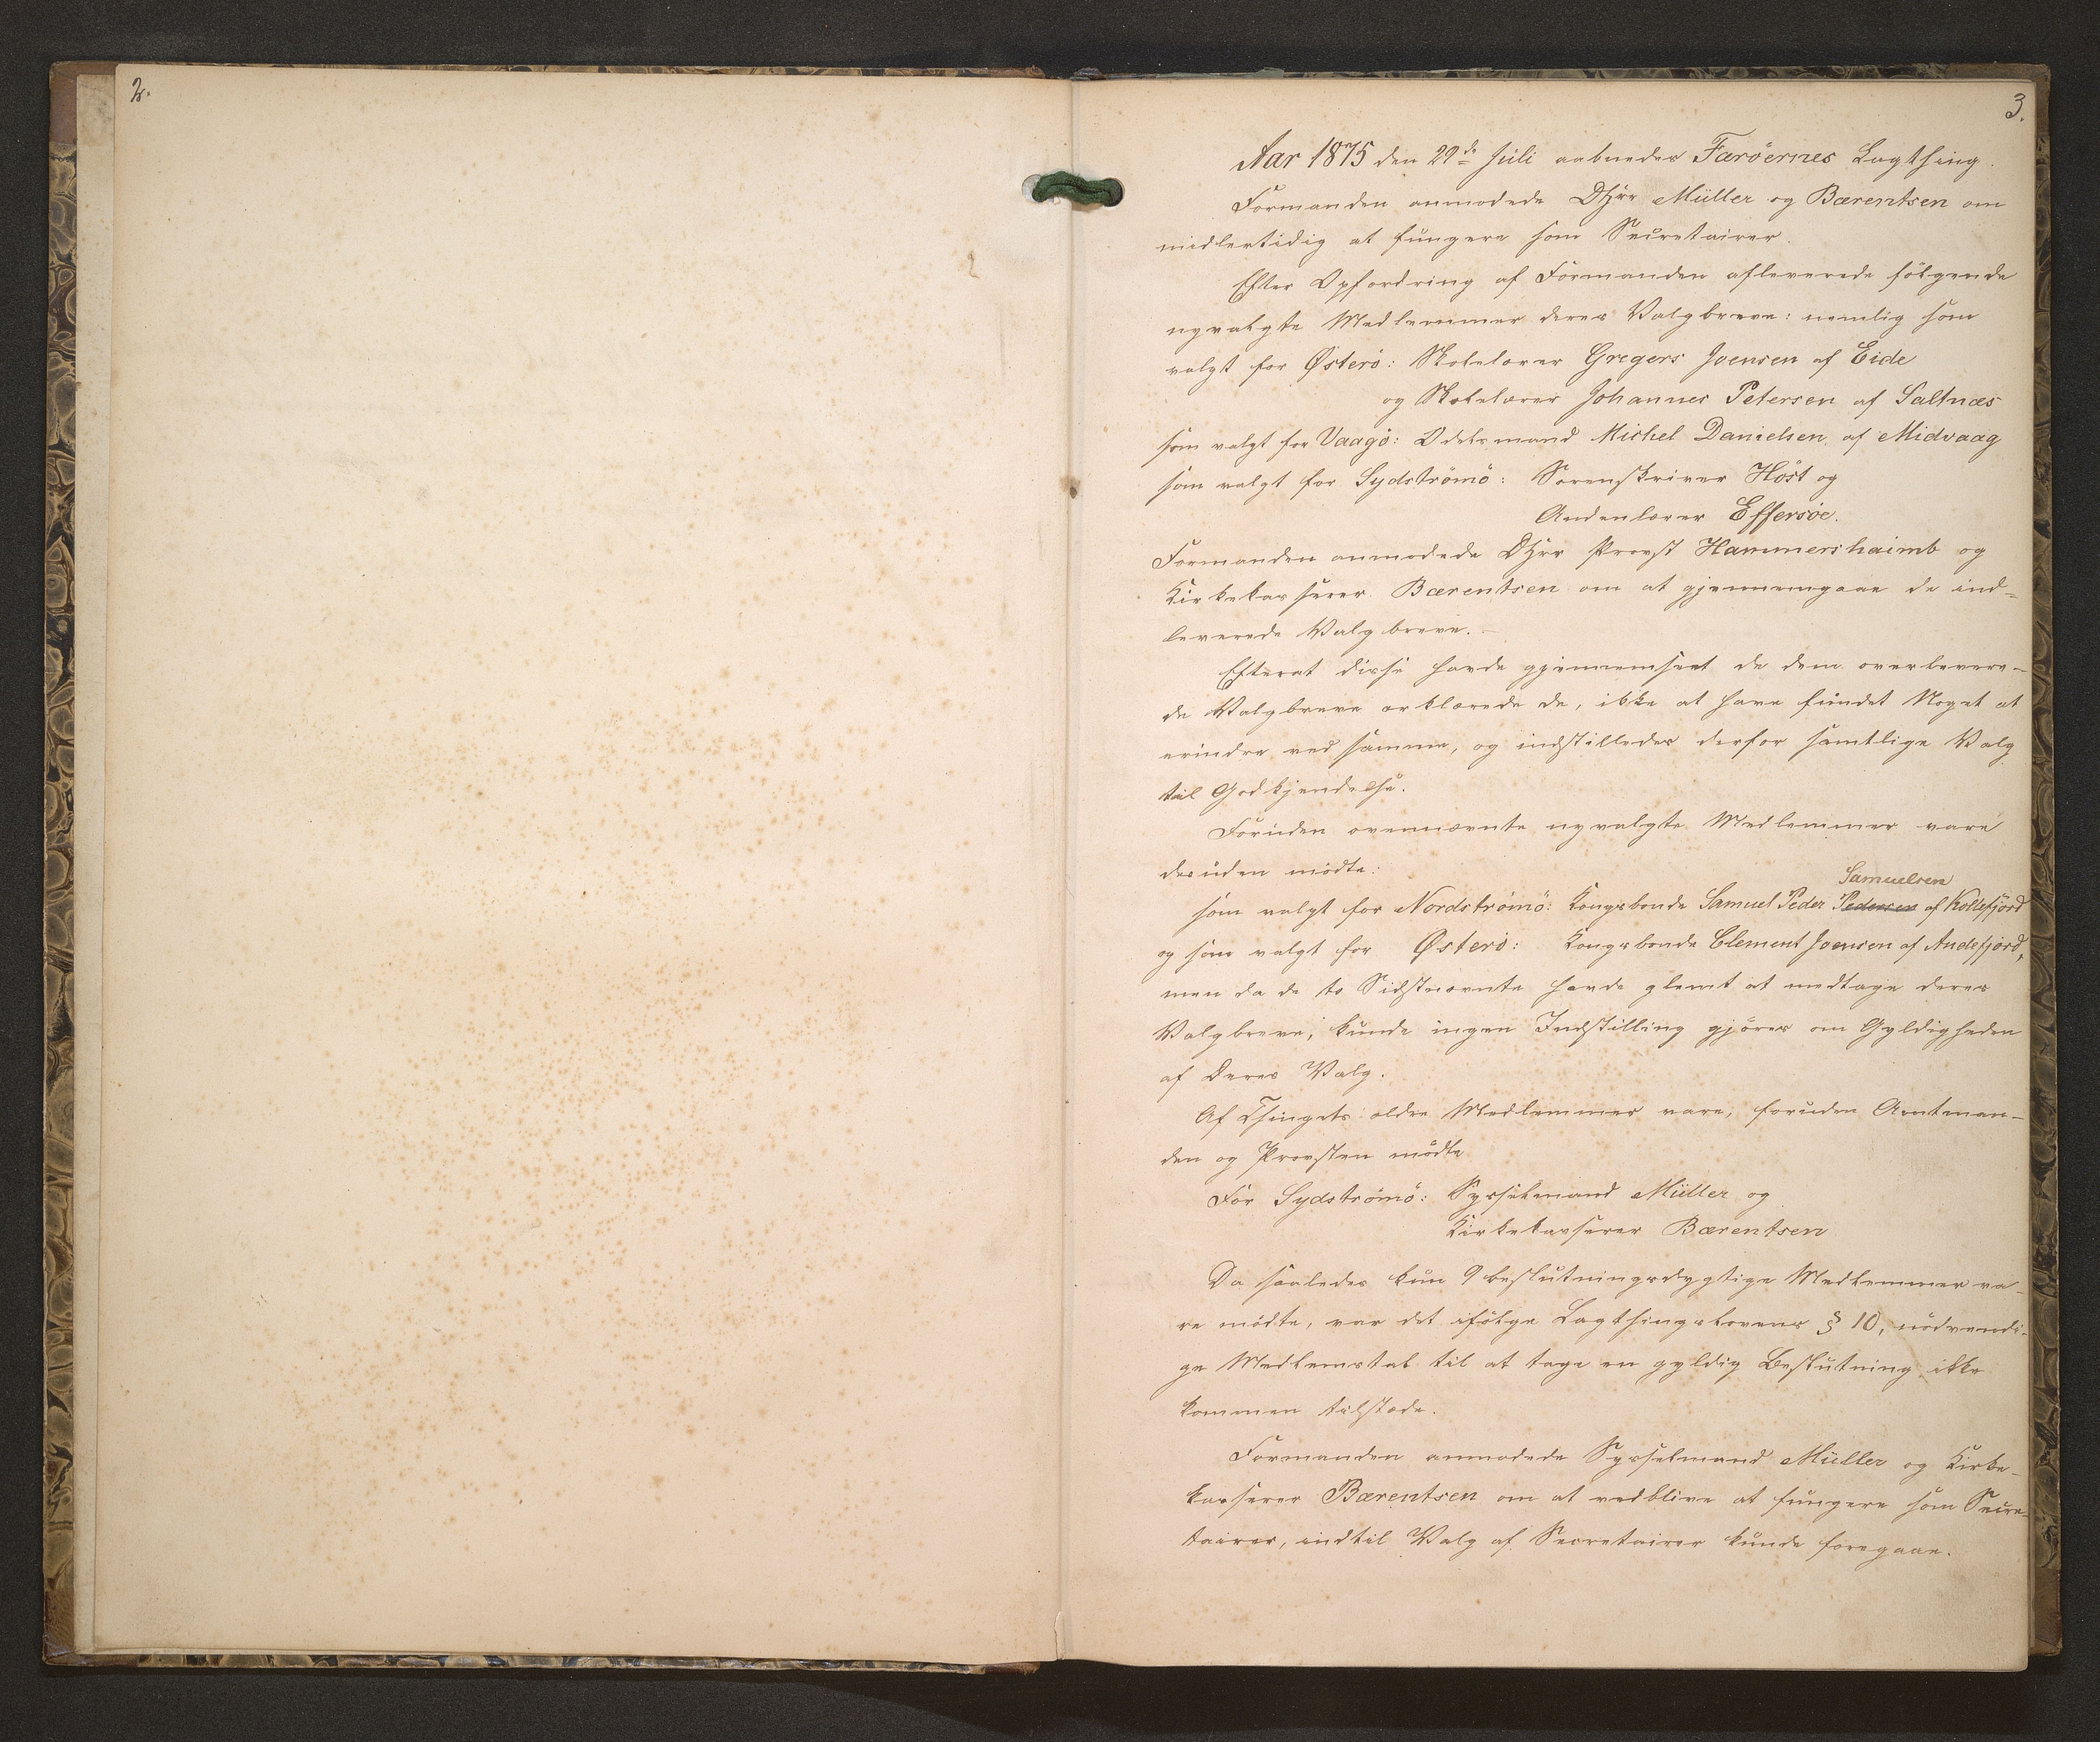 2.
3.
Aar 1875 den 29de Juli aabnedes Færöernes Lagthing.
Formanden anmodede DHrr Müller og Bærentsen om
midlertidig at fungere som Secretairer.
Efter Opfordring af Formanden afleverede fölgende
nyvalgte Medlemmer deres Valgbreve: nemlig som
valgt for Østerö: Skolelærer Gregers Joensen af Eide
og Skolelærer Johannes Petersen af Saltnæs
som valgt for Vaagö: Odelsmand Mickel Danielsen af Midvaag
som valgt for Sydströmö: Sorenskriver Höst og
Andenlærer Effersöe.
Formanden anmodede DHrr Provst Hammershaimb og
Kirkekasserer Bærentsen om at gjennemgaae de ind=
leverede Valgbreve.
Efterat disse havde gjennemseet de dem overlevere-
de Valgbreve erklærede de, ikke at have fundet Noget at
erindre ved samme, og indstilledes derfor samtlige Valg
til Godkjendelse.
Foruden ovennævnte nyvalgte Medlemmer vare
desuden mödte:
Samuelsen
som valgt for Nordströmö: Kongsbonde Samuel Peder Pedersen af Kollefjörd
og som valgt for Østerö: Kongsbonde Clement Joensen af Andefjord,
men da de to Sidstnævnte havde glemt at medtage deres
Valgbreve, kunde ingen Indstilling gjöres om Gyldigheden
af Deres Valg.
Af Thingets ældre Medlemmer vare, foruden Amtman-
den og Provsten mödte
For Sydströmö: Sysselmand Müller og
Kirkekasserer Bærentsen
Da saaledes kun 9 beslutningsdygtige Medlemmer va-
re mödte, var det ifölge Lagthingslovens § 10, nödvendi-
ge Medlemstal til at tage en gyldig Beslutning ikke
kommen tilstede.
Formanden anmodede Sysselmand Müller og Kirke-
kasserer Bærentsen om at vedblive at fungere som Secre-
tairer, indtil Valg af Secretairer kunde foregaae.